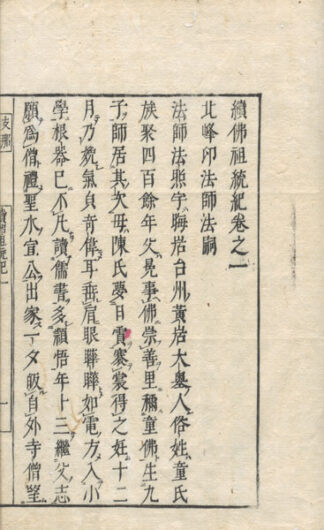 續佛祖統紀卷之一
北峰印法師法嗣
法師法照字晦岩台州黃岩大墓人俗姓童氏
族聚四百餘年父晃事佛崇善里稱童佛生九
子師居其次母陳氏夢日霣褰裳得之妊十二
月乃娩氣皃奇偉耳垂肩眼如電方入小
學根器已不凡讀儒書多穎悟年十三繼父志
願為僧禮聖水宜公出家一夕皈自外寺僧望